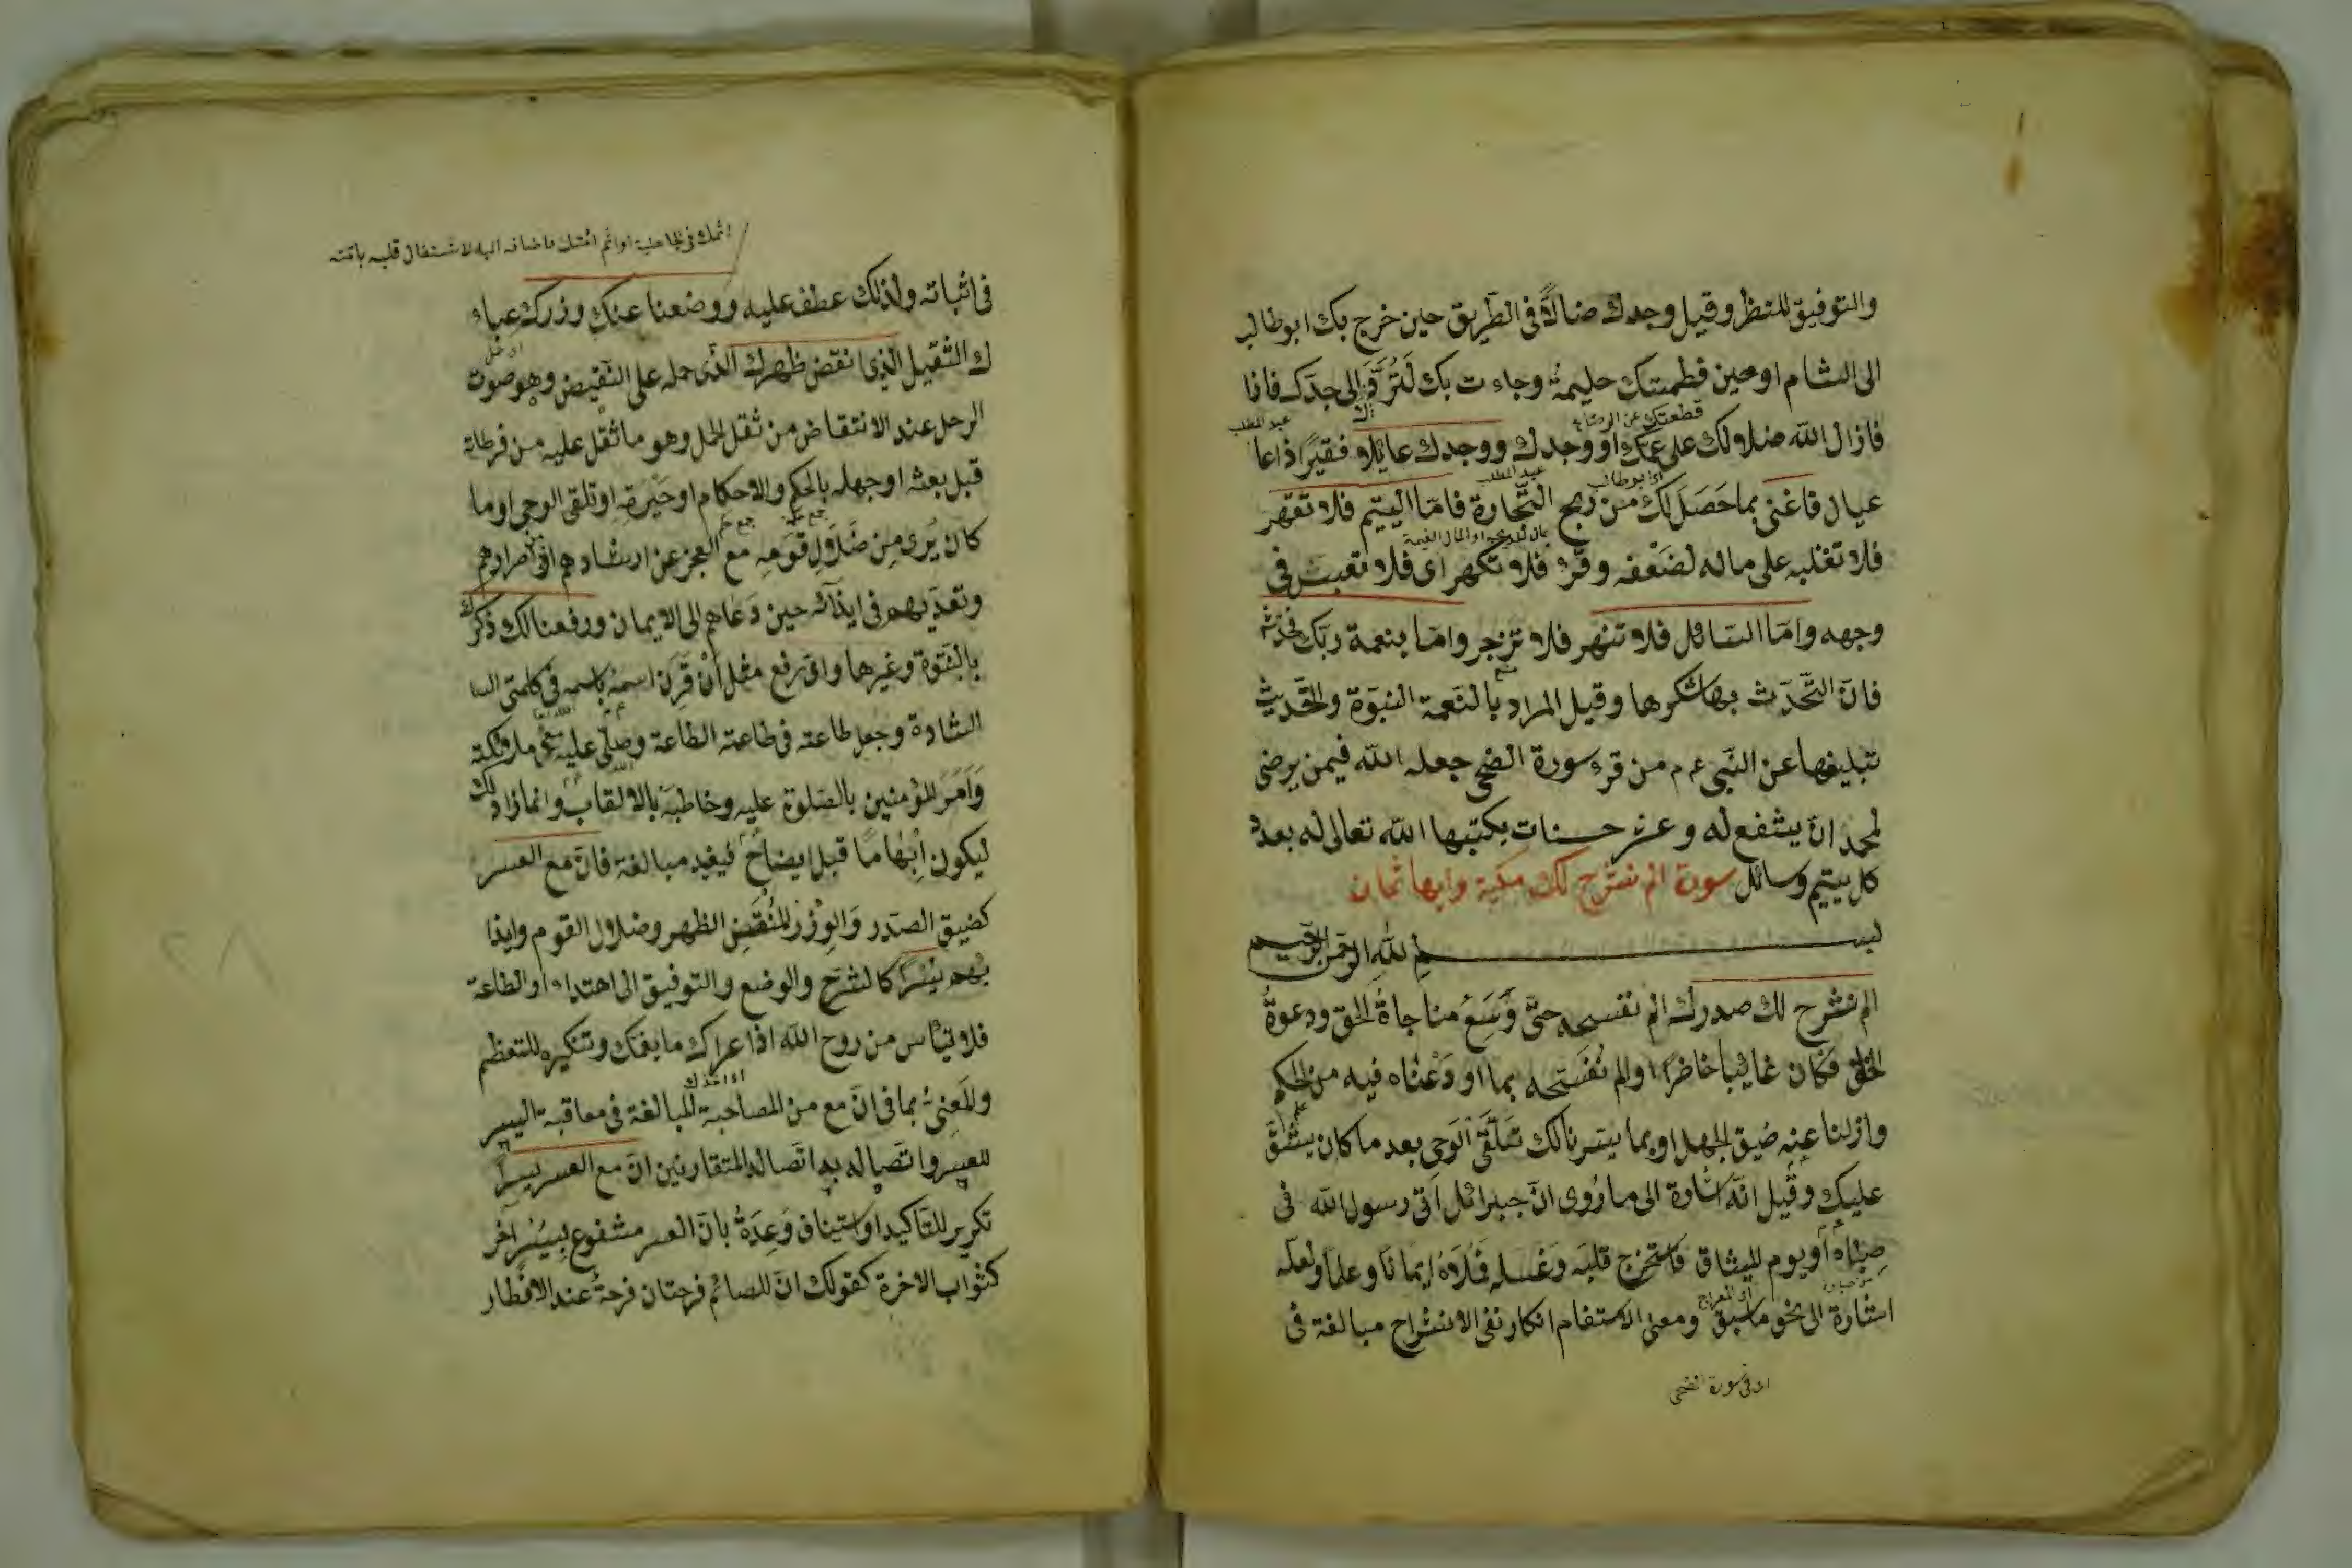 والتوفيق للنظر وقيل وجدك ضالاًّ فى الطريق حين خرج بك ابو طالب
الى الشام او حين فطمتك حليمة وجاءت بك لتردّك الى جدك فانا
قطعتك عن الرضاع
عبد المطلب
فازال الله ضلالك على عمك او وجدك ووجدك عائلا فقيرًا ذا عا
اى ابو طالب
عبد المطلب
عيال فاغنى بما حَصَلَ لك من ربح التّجارة فامّا اليتيم فلا تقهر
فلا تغلبه على ماله لضَعْفه وقرئ فلا تكهر اى فلا تعبس فى
وجهه وامّا السّائل فلا تنهر فلا تزجر وامّا بنعمة ربّك فحدّث
فانّ التّحدّث بها شكرها وقيل المراد بالنّعمة النّبوّة والتّحديث
تبليغها عن النّبى ع م من قرء سورة الضحى جعله الله فيمن يرضى
لمحمد ان يشفع له وعشر حسنات يكتبها الله تعالى له بعدد
كل يتيم وسائل سورة الم نشرح لك مكية وايها ثمان
بسم الله الرحمن الرحيم
الم نشرح لك صدرك الم نفسحه حتّى وَسَعَ مناجاةَ الحق ودعوةَ
الخلق فكان غائبا حاضرًا او الم نُفسّحه بما اودَعْناه فيه من الحكم
وازلنا عنه ضيق الجهل او بما يسّرنا لك تلقّىَ الوحى بعد ما كان يشقّ
عليك وقيل انّه اشارة الى ما رُوى انّ جبرائل اتى رسول الله فى
صباه أو يوم الميثاق فاستخرج قلبَه وغسله فملأه ايمانًا وعلمًا ولعلّه
اشارة الى نحو ما سبق ومعنى الاستفهام انكار نفى الانشراح مبالغة فى
اى فى سورة الضحى
اثمك فى الجاهلية او اثم امّتك فاضافه اليه لاشتغال قلبه بامّته
فى اثباته ولذلك عطف عليه ووضعنا عنك وزرك عباء
ك الثّقيل الذى انقض ظهرك الّذى حمله على النّقيض وهو صوت
الرحل عند الانتقاض من ثقل الحمل وهو ما ثقل عليه من فرطاته
قبل بعثه او جهله بالحكم والاحكام او حَيْرَتِهِ او تلقى الوحى او ما
كان يُرى مِن ضَلاَلِ قَوْمِهِ مع العجز عن ارشادهم اى اصرارهم
وتعدّيهم فى ايذائه حين دَعاهم الى الايمان ورفعنا لك ذكرك
بالنّبوّة وغيرها واىّ رفع مثل أنْ قَرَنَ اسمَهُ باسمه فى كلمتى
الشادة وجعل طاعته فى طاعته الطاعة وصلّى عليه فى ملائكته
وَأمَرَ المؤمنين بالصّلوة عليه وخاطبَهُ بالالقاب وانما زاد لك
ليكون اِبْهامًا قبل ايضاح فيفيد مبالغة فانّ مع العسر
كضيق الصّدر وَالوِزْرِ المُنْقِض الظهر وضلال القوم وايذا
ئهم يُسْرًا كالشرح والوضع والتوفيق الى اهتداء او الطاعة
فلا تيأس من روح الله اذا عراك ما يغمّك وتنكيره للتعظيم
والمعنىُّ بما فى انّ مع من المصاحبة المبالغة فى معاقبة اليسر
للعسر واتّصاله به اتّصال المتقارنين انّ مع العسر يسرًا
تكرير للتّاكيد او استيناف وَعِدَةٌ بانّ العسر مشفوع بيُسْرٍ اخر
كثواب الاخرة كقولك انّ للصائم فرحتان فرحةً عند الافطار